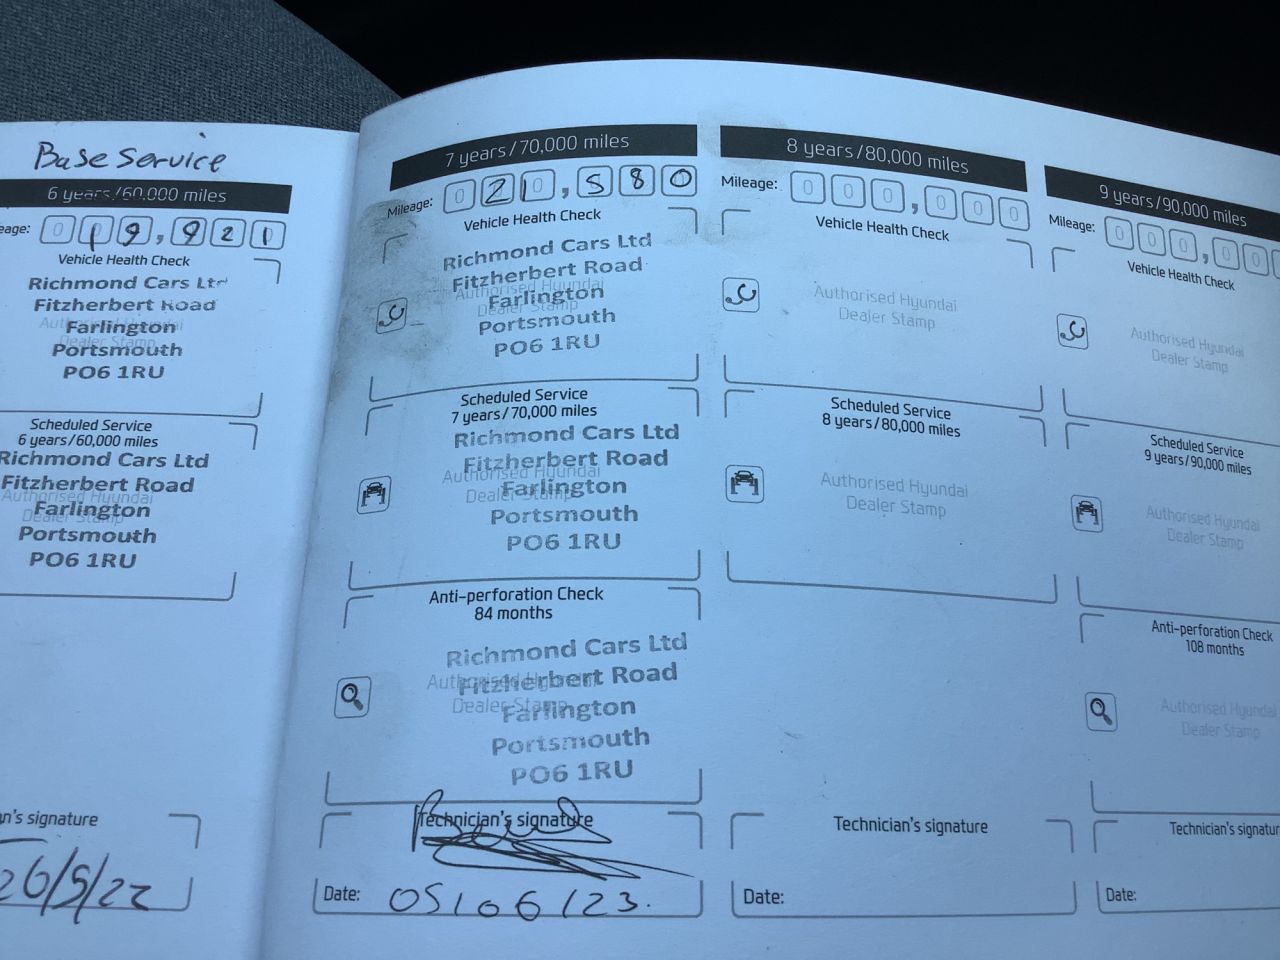 Base Service
6 years/60,000 miles
eage: 0 1 9 , 9 2 1
Vehicle Health Check
Richmond Cars Ltd
Fitzherbert Road
Authorised Hyundai
Farlington
Dealer Stamp
Portsmouth
PO6 1RU
Scheduled Service
6 years/60,000 miles
Richmond Cars Ltd
Fitzherbert Road
Authorised Hyundai
Farlington
Dealer Stamp
Portsmouth
PO6 1RU
n's signature
26/5/22
7 years/70,000 miles
Mileage: 0 2 1 , 5 8 0
Vehicle Health Check
Richmond Cars Ltd
Fitzherbert Road
Authorised Hyundai
Farlington
Dealer Stamp
Portsmouth
PO6 1RU
Scheduled Service
7 years/70,000 miles
Richmond Cars Ltd
Fitzherbert Road
Authorised Hyundai
Farlington
Dealer Stamp
Portsmouth
PO6 1RU
Anti-perforation Check
84 months
Richmond Cars Ltd
Fitzherbert Road
Authorised Hyundai
Farlington
Dealer Stamp
Portsmouth
PO6 1RU
Technician's signature
Date: 05/06/23.
8 years/80,000 miles
Mileage: 0 0 0 , 0 0 0
Vehicle Health Check
Authorised Hyundai
Dealer Stamp
Scheduled Service
8 years/80,000 miles
Authorised Hyundai
Dealer Stamp
Technician's signature
Date:
9 years/90,000 miles
Mileage: 0 0 0 , 0 0
Vehicle Health Check
Authorised Hyundai
Dealer Stamp
Scheduled Service
9 years/90,000 miles
Authorised Hyundai
Dealer Stamp
Anti-perforation Check
108 months
Authorised Hyundai
Dealer Stamp
Technician's signatur
Date: